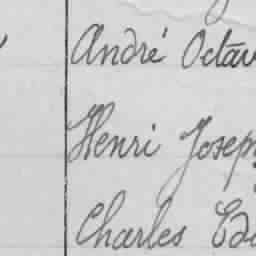 André Octav
Henri Joseph
Charles Ed